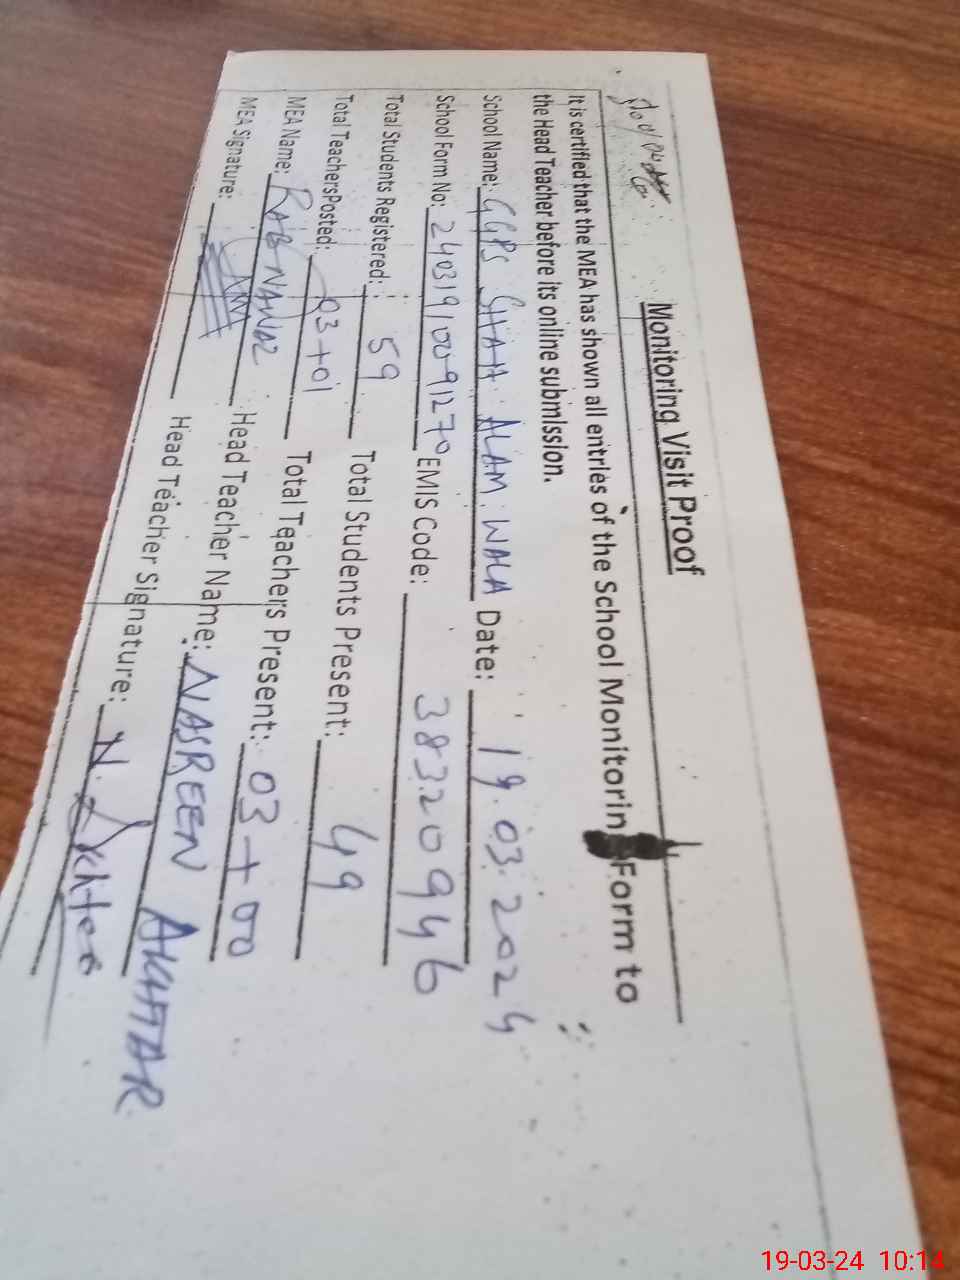 Monitoring Visit Proof
It is certified that the MEA has shown all entries of the School Monitorin Form to
the Head Teacher before its online submission.
School Name: GGPS SHAH ALAM WALA Date: 19.03.2024
School Form No: 24031910091270 EMIS Code: 38320946
Total Students Registered: 59 Total Students Present: 49
Total TeachersPosted: 03+01 Total Teachers Present: 03+00
MEA Name: RAB NAWAZ Head Teacher Name: NASREEN AKHTAR
MEA Signature: Head Teacher Signature: N. Akhter
19-03-24 10:14